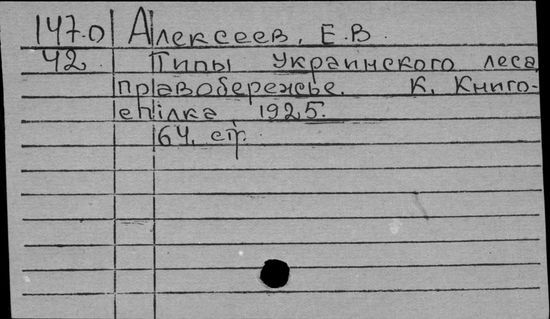 147.0 Алексеев, Е.В.
42 Типы Украинского леса
правобережье. К. Книго-
спілка, 1925.
64. стр.